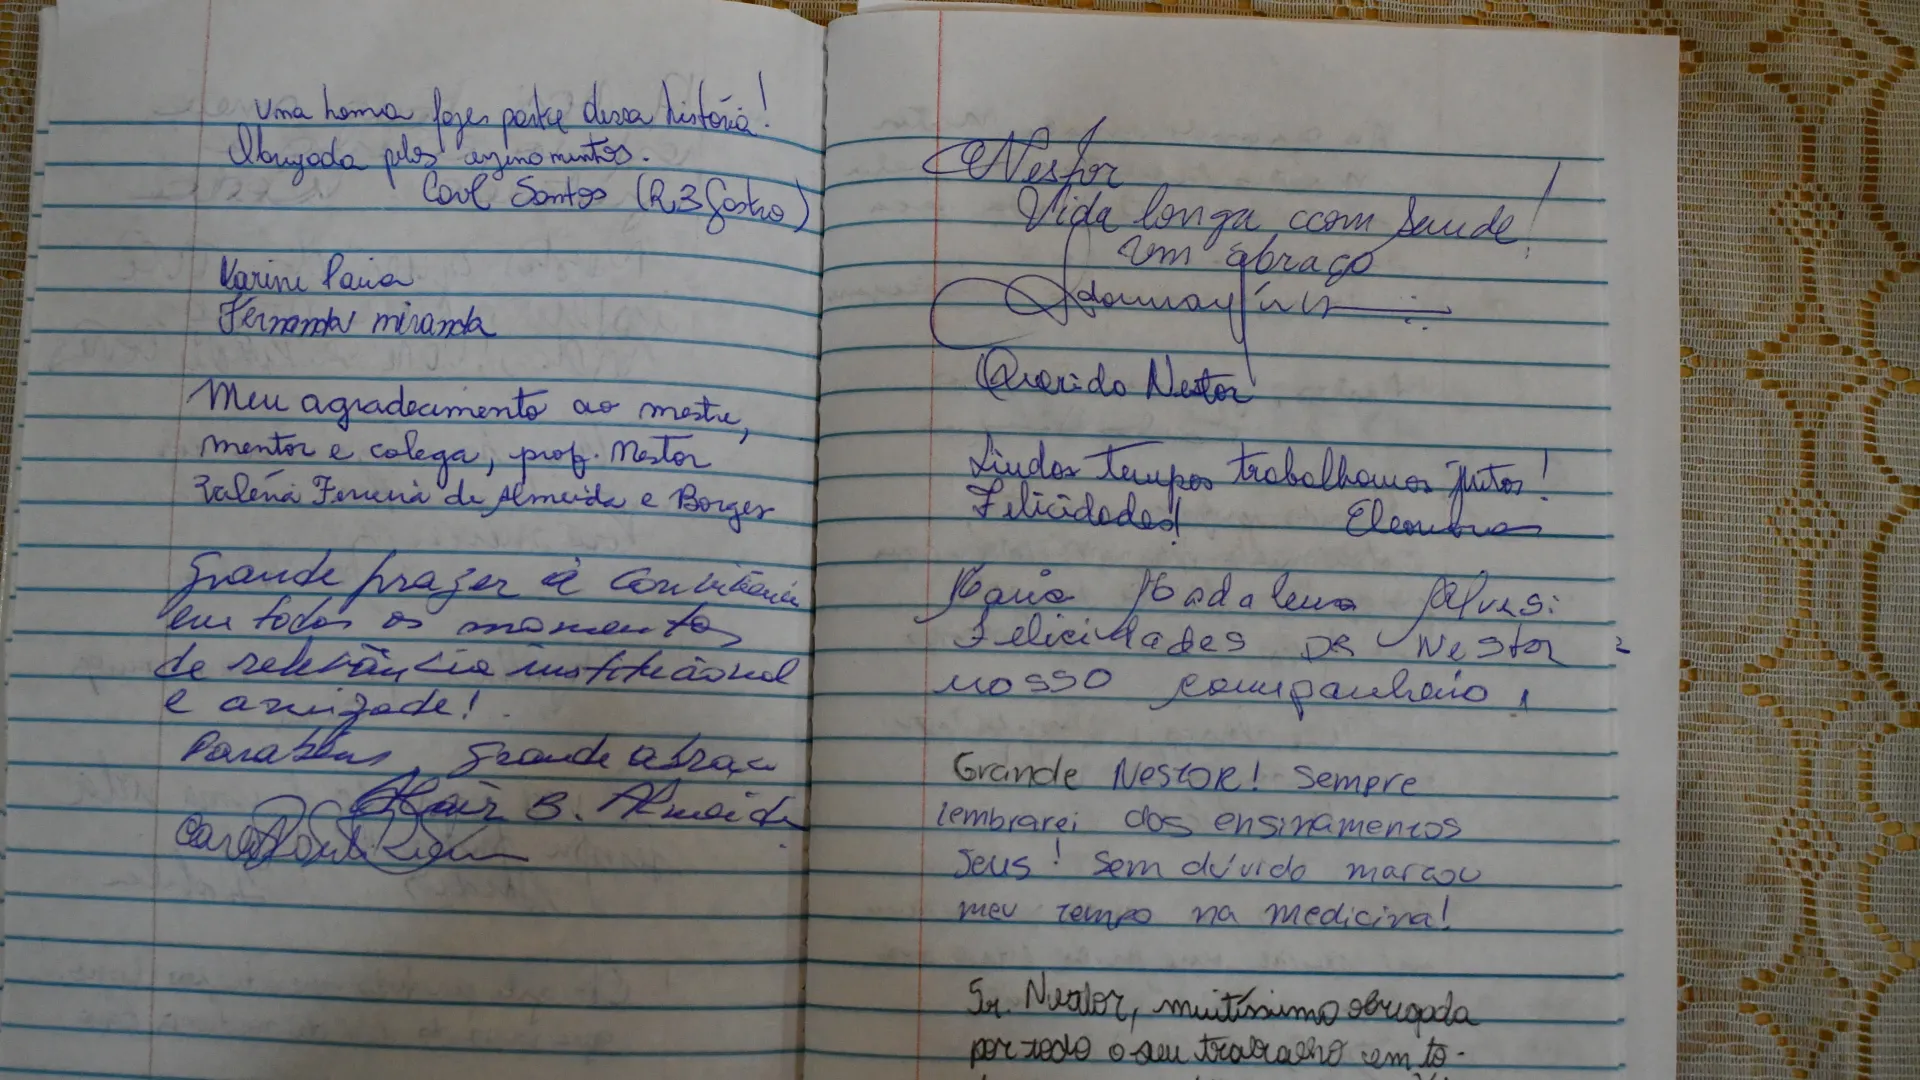 Uma honra fazer parte dessa história!
Obrigada pelos ensinamentos.
Carol Santos (R3 Gastro)
Karine Paiva
Fernanda miranda
Meu agradecimento ao mestre,
mentor e colega, prof. Nestor
Valéria Ferreira de Almeida e Borges
Grande prazer a convivência
em todos os momentos
de relevância institucional
e amizade!
Parabéns, grande abraço
B. Almeida
Nestor
Vida longa com Saude!
um abraço
Querido Nestor
Lindos tempos trabalhamos juntos!
Felicidades!
Maria Madalena Alves:
Felicidades Dr Nestor
nosso companheiro,
Grande Nestor! Sempre
lembrarei dos ensinamentos
seus! Sem dúvida marcou
meu tempo na medicina!
Sr. Nestor, muitíssimo obrigada
por todo o seu trabalho em to-